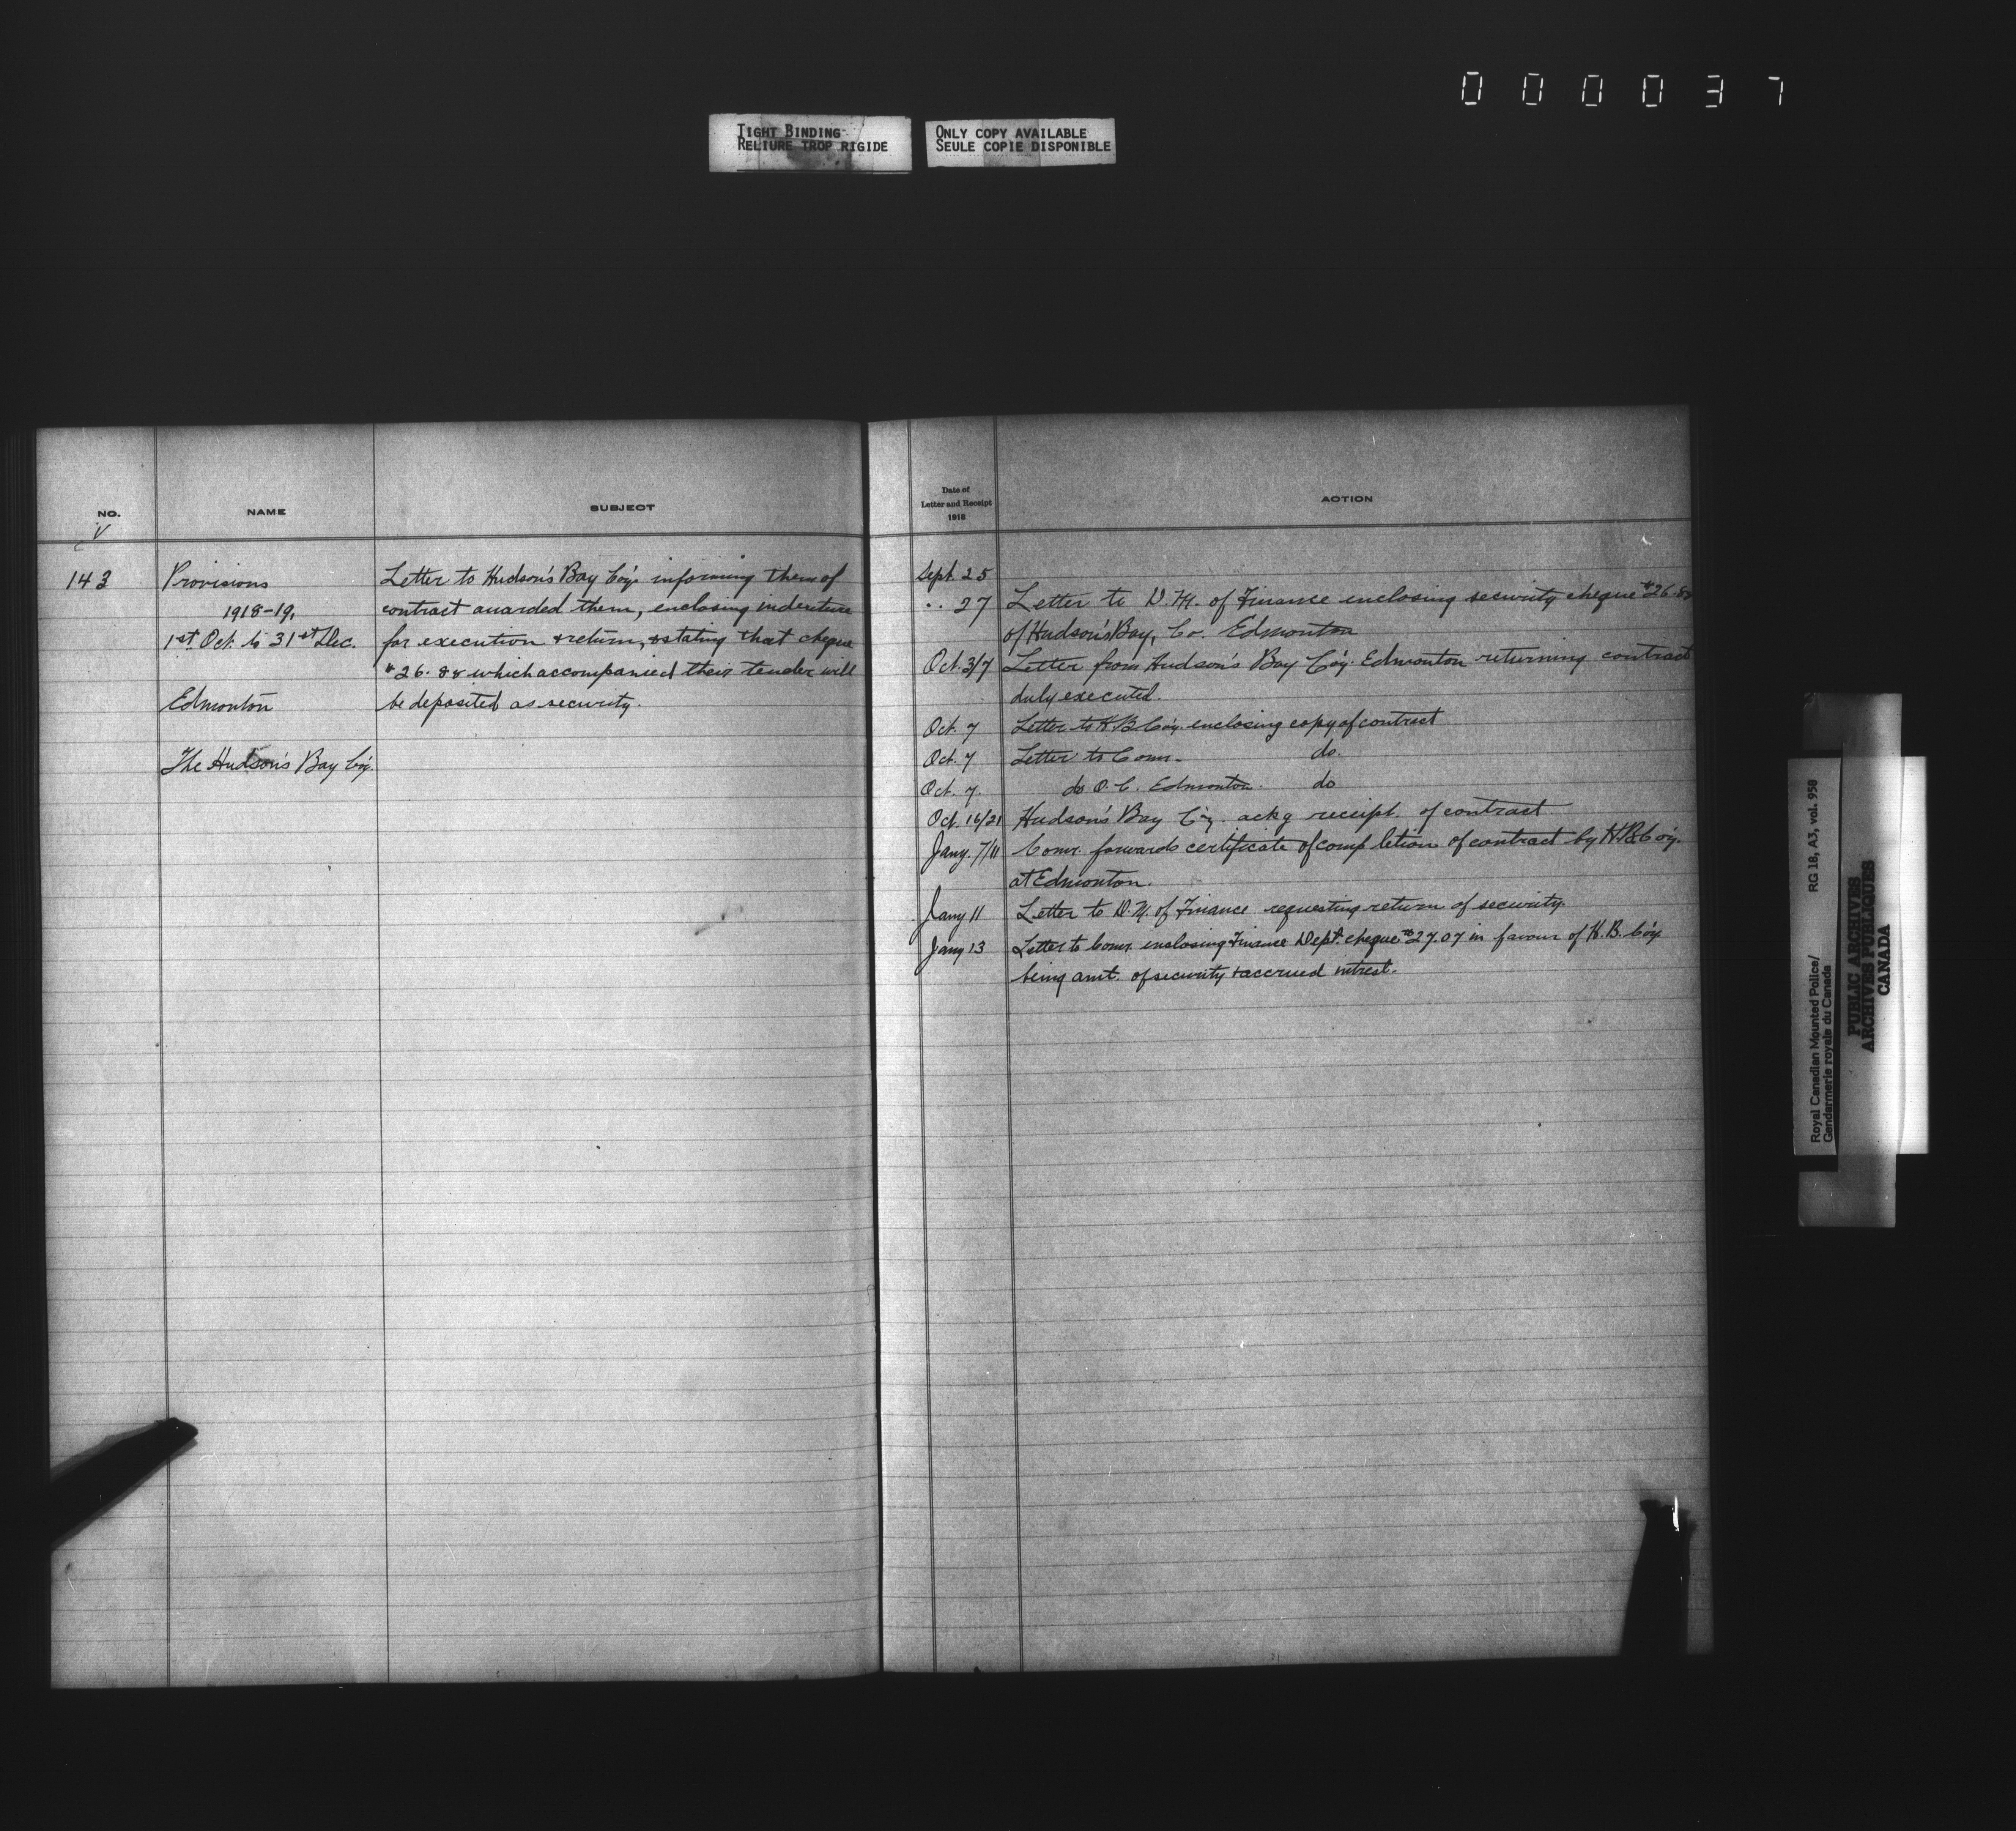 000037
TIGHT BINDING
RELIURE TROP RIGIDE
ONLY COPY AVAILABLE
SEULE COPIE DISPONIBLE
NO.
NAME
SUBJECT
V
143
Provisions
1918-19.
1st Oct. to 31st Dec.
Edmonton
The Hudson's Bay Co'y.
Letter to Hudson's Bay Co'y. informing them of
contract awarded them, enclosing indenture
for execution & return, & stating that cheque
$26.88 which accompanied their tender will
be deposited as security.
Date of
Letter and Receipt
1918
ACTION
Sept. 25
.. 27 Letter to D.M. of Finance enclosing security cheque $26.88
of Hudson's Bay, Co. Edmonton
Oct. 3/7 Letter from Hudson's Bay Co'y. Edmonton returning contract
duly executed.
Oct. 7 Letter to H B Co'y. enclosing copy of contract
Oct. 7 Letter to Comr. do.
Oct. 7. do O.C. Edmonton. do
Oct. 16/21 Hudson's Bay Co'y. ackg receipt of contract
Jany. 7/11 Comr. forwards certificate of completion of contract by H.B. Co'y.
at Edmonton.
Jany 11 Letter to D.M. of Finance requesting return of security.
Jany 13 Letter to Comr. enclosing Finance Dept. cheque $27.07 in favour of H.B. Co'y
being amt. of security & accrued intrest.
Royal Canadian Mounted Police/ RG 18, A3, vol. 958
Gendarmerie royale du Canada
PUBLIC ARCHIVES
ARCHIVES PUBLIQUES
CANADA